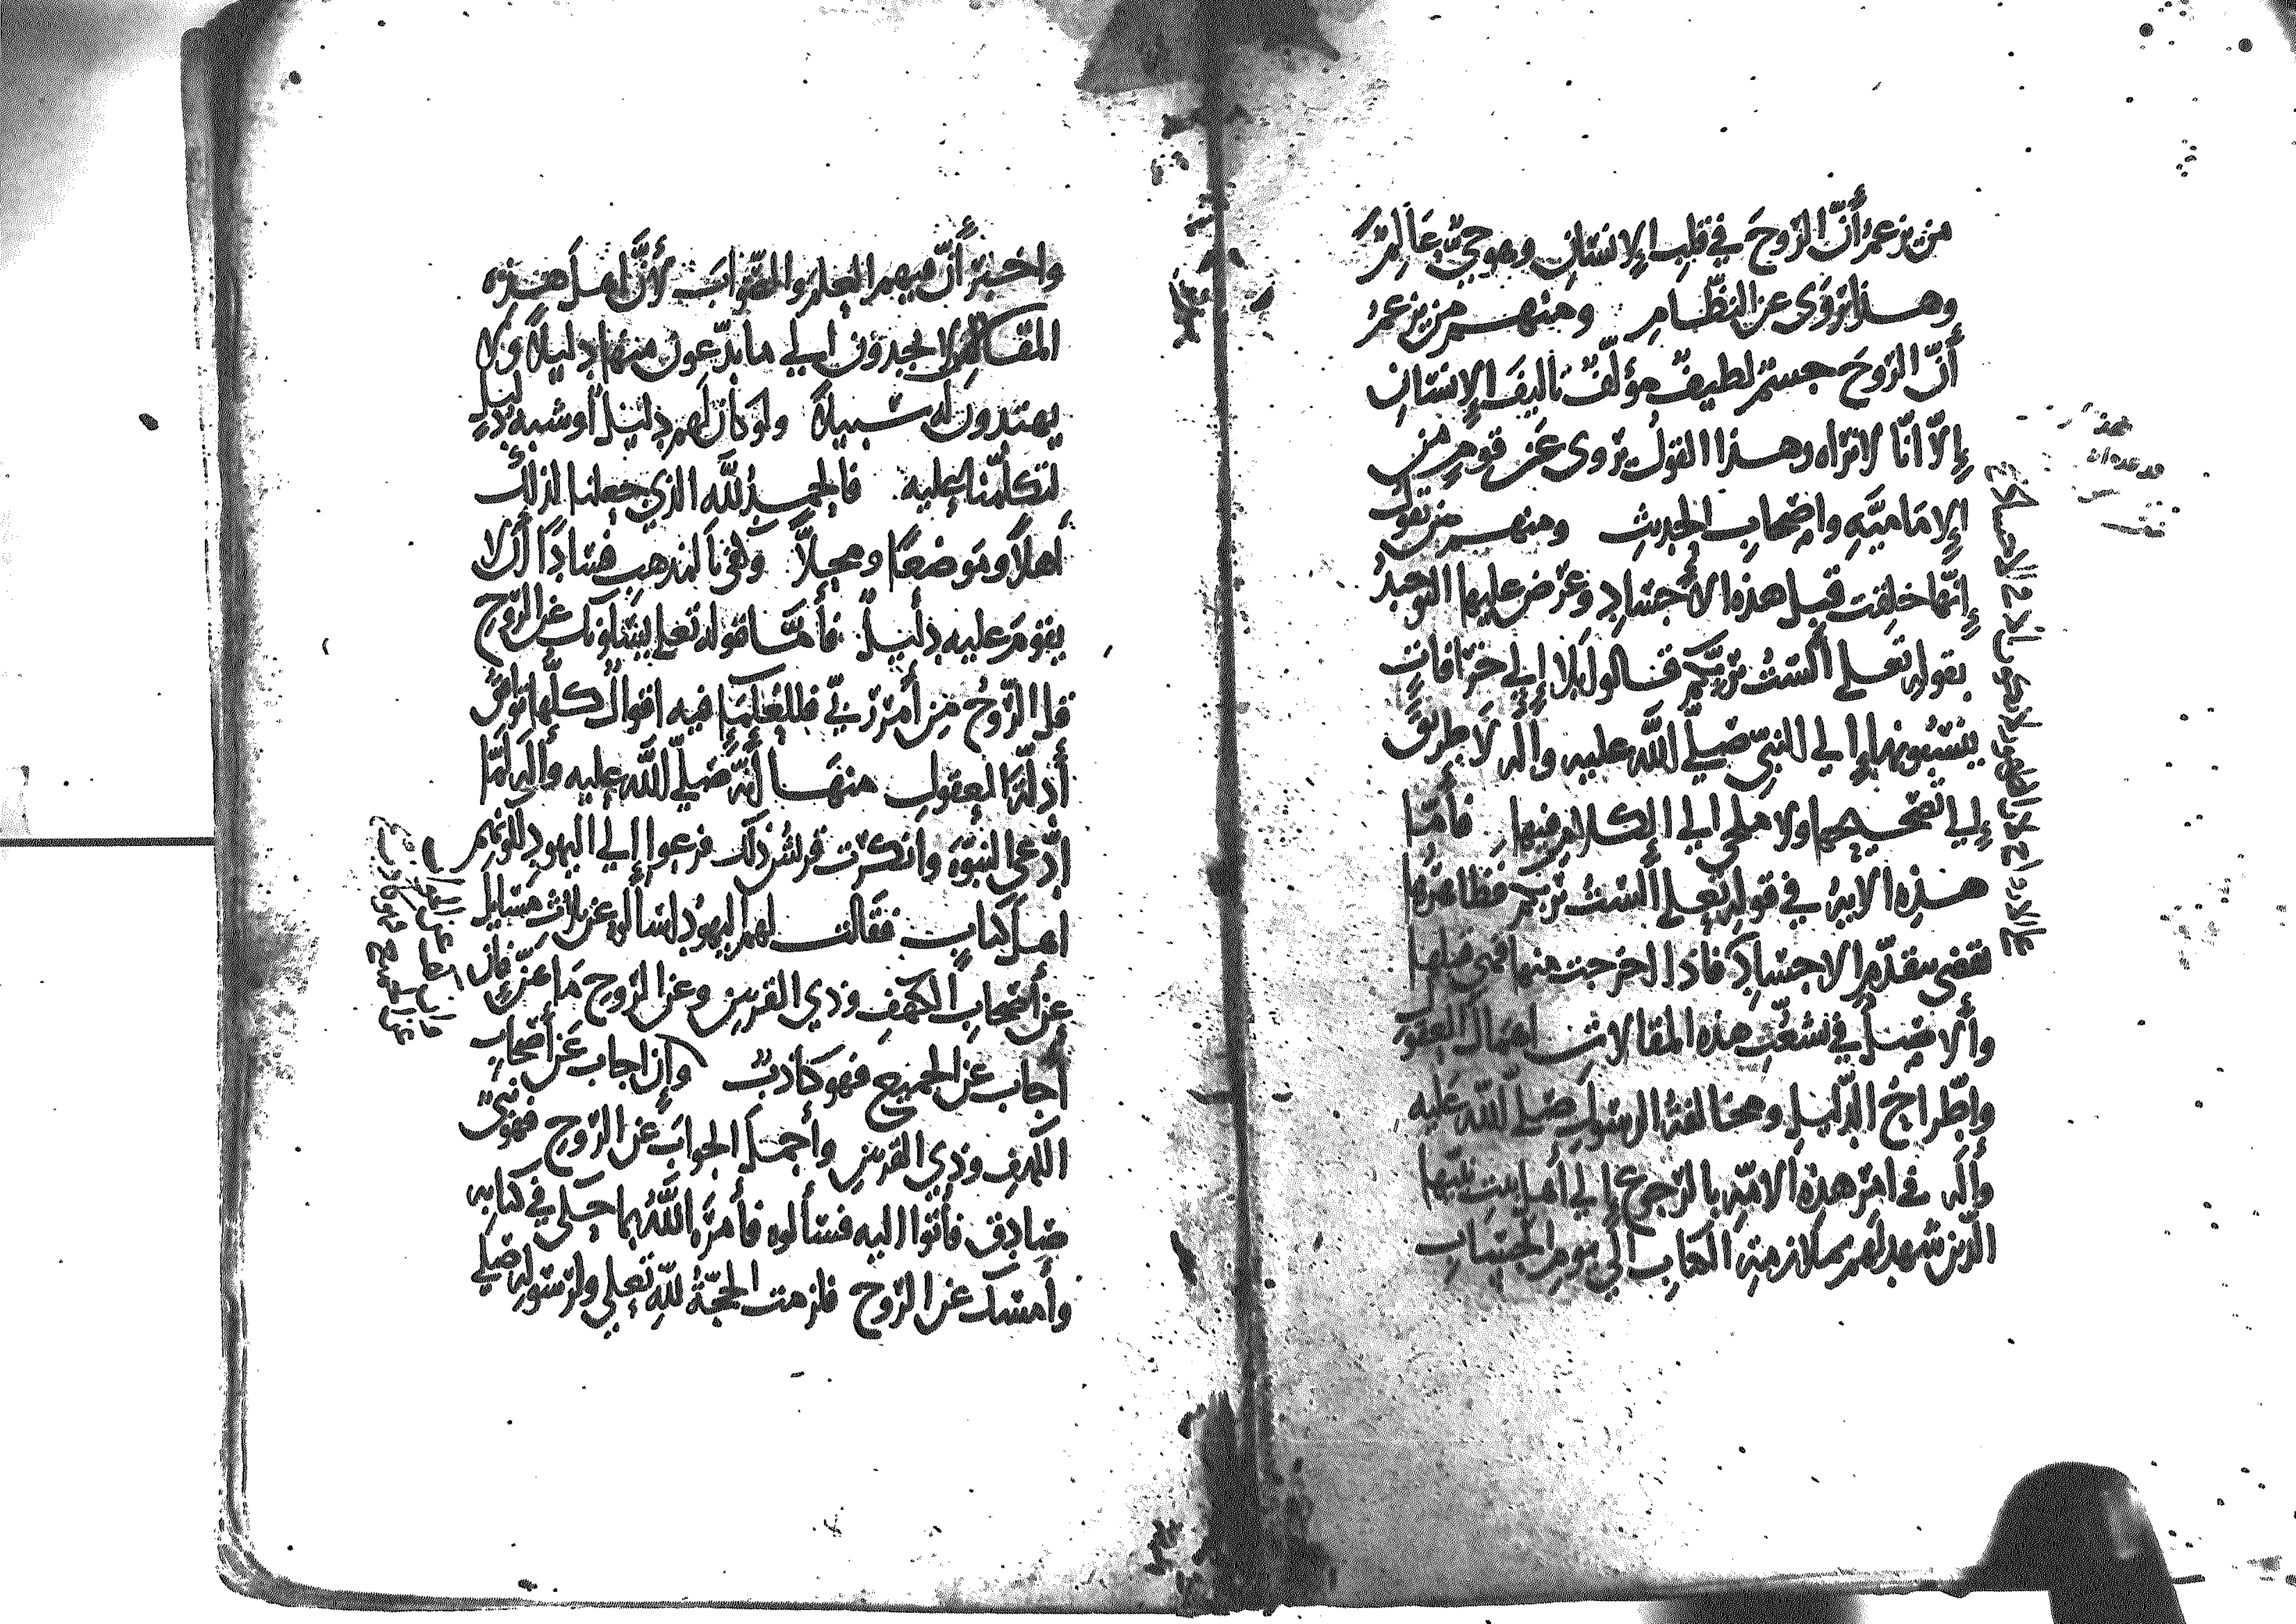 من يزعم أنّ الرّوحَ في قلب الإنسان وهو حيٌّ عالمٌ
وهذا يُروى عن النظّام ومنهم من يزعمُ
أنّ الرّوحَ جسم لطيفٌ مؤلّفٌ تأليفَ الإنسان
إلاّ أنّا لا نراه وهذا القولُ يروى عَن قومٍ من
الإماميَّةِ واصحاب الحديثِ ومنهم من يقول
إنّها خلقت قبل هذه الأجساد وعُرض عليها التوحيدُ
بقوله تعلى ألستُ بربّكم قالوا بلا إلى خرافاتٍ
ينسبُونها إلى النبيّ صَلّى اللّه عليه وآله لا طريقَ
إلى تصحيحها ولا ملجى الى الكلام فيها فأمّا
هذه الآيةُ في قوله تعلى ألستُ بربّكم فظاهرُها
يقضي بتقدّم الاجسادِ فاذا اخرجت منها فهي قبلها
وألاصلُ في تشعّبِ هذه المقالاتِ اهمال العقول
واطّراحُ الدّليلِ ومخالفةُ الرسول صلّى اللّه عليه
وآله في امر هذه الأمّةِ بالرّجوع إلى أهل بيت نبيّها
الّذين شهد لهم بملازمةِ الكتاب الى يوم الحسابِ
واخبر أنّ فيهم العلم والصّوابَ لأنّ اهلَ هذه
المقالة لا يجدون الى ما يدّعون منها دليلاً ولا
يهتدون له سبيلاً ولو كان لهم دليل أو شبه دليل
لتكلّمنا عليه فالحمدُ للّه الذي جعلنا لذلك
أهلاً ومَوضعًا ومحلاًّ وكفى بالمذهب فسادًا ألاّ
يقومَ عليه دليل فأمّا قوله تعلى يسئلونك عن الرّوح
قل الرّوحُ من أمر ربّي فللعُلَمَاءِ فيه اقوالٌ كلّها توافق
أدلّةَ العقولِ منها أنّه صَلّى اللّه عليه وآله لمّا
ادّعى النبوّة وانكرت قريشُ ذلك فزعوا إلى اليهود لكونهم
اهلَ كتابٍ فقالت لهم اليهودُ اسألوه عن ثلاث مسائل
عن أصحاب الكهف وذي القرنين وعن الرّوح فان
أجاب عن الجميع فهو كاذبٌ وإن اجاب عن أصحاب
الكهف وذي القرنين وأجمل الجوابَ عن الرّوح فهو نبيّ
صادق فأتوا اليه فسألوه فأمرَه اللّهُ بما حكى في كتابه
وأمسك عن الرّوح فلزمت الحجّةُ للّه تعلى ولرسوله صلّى